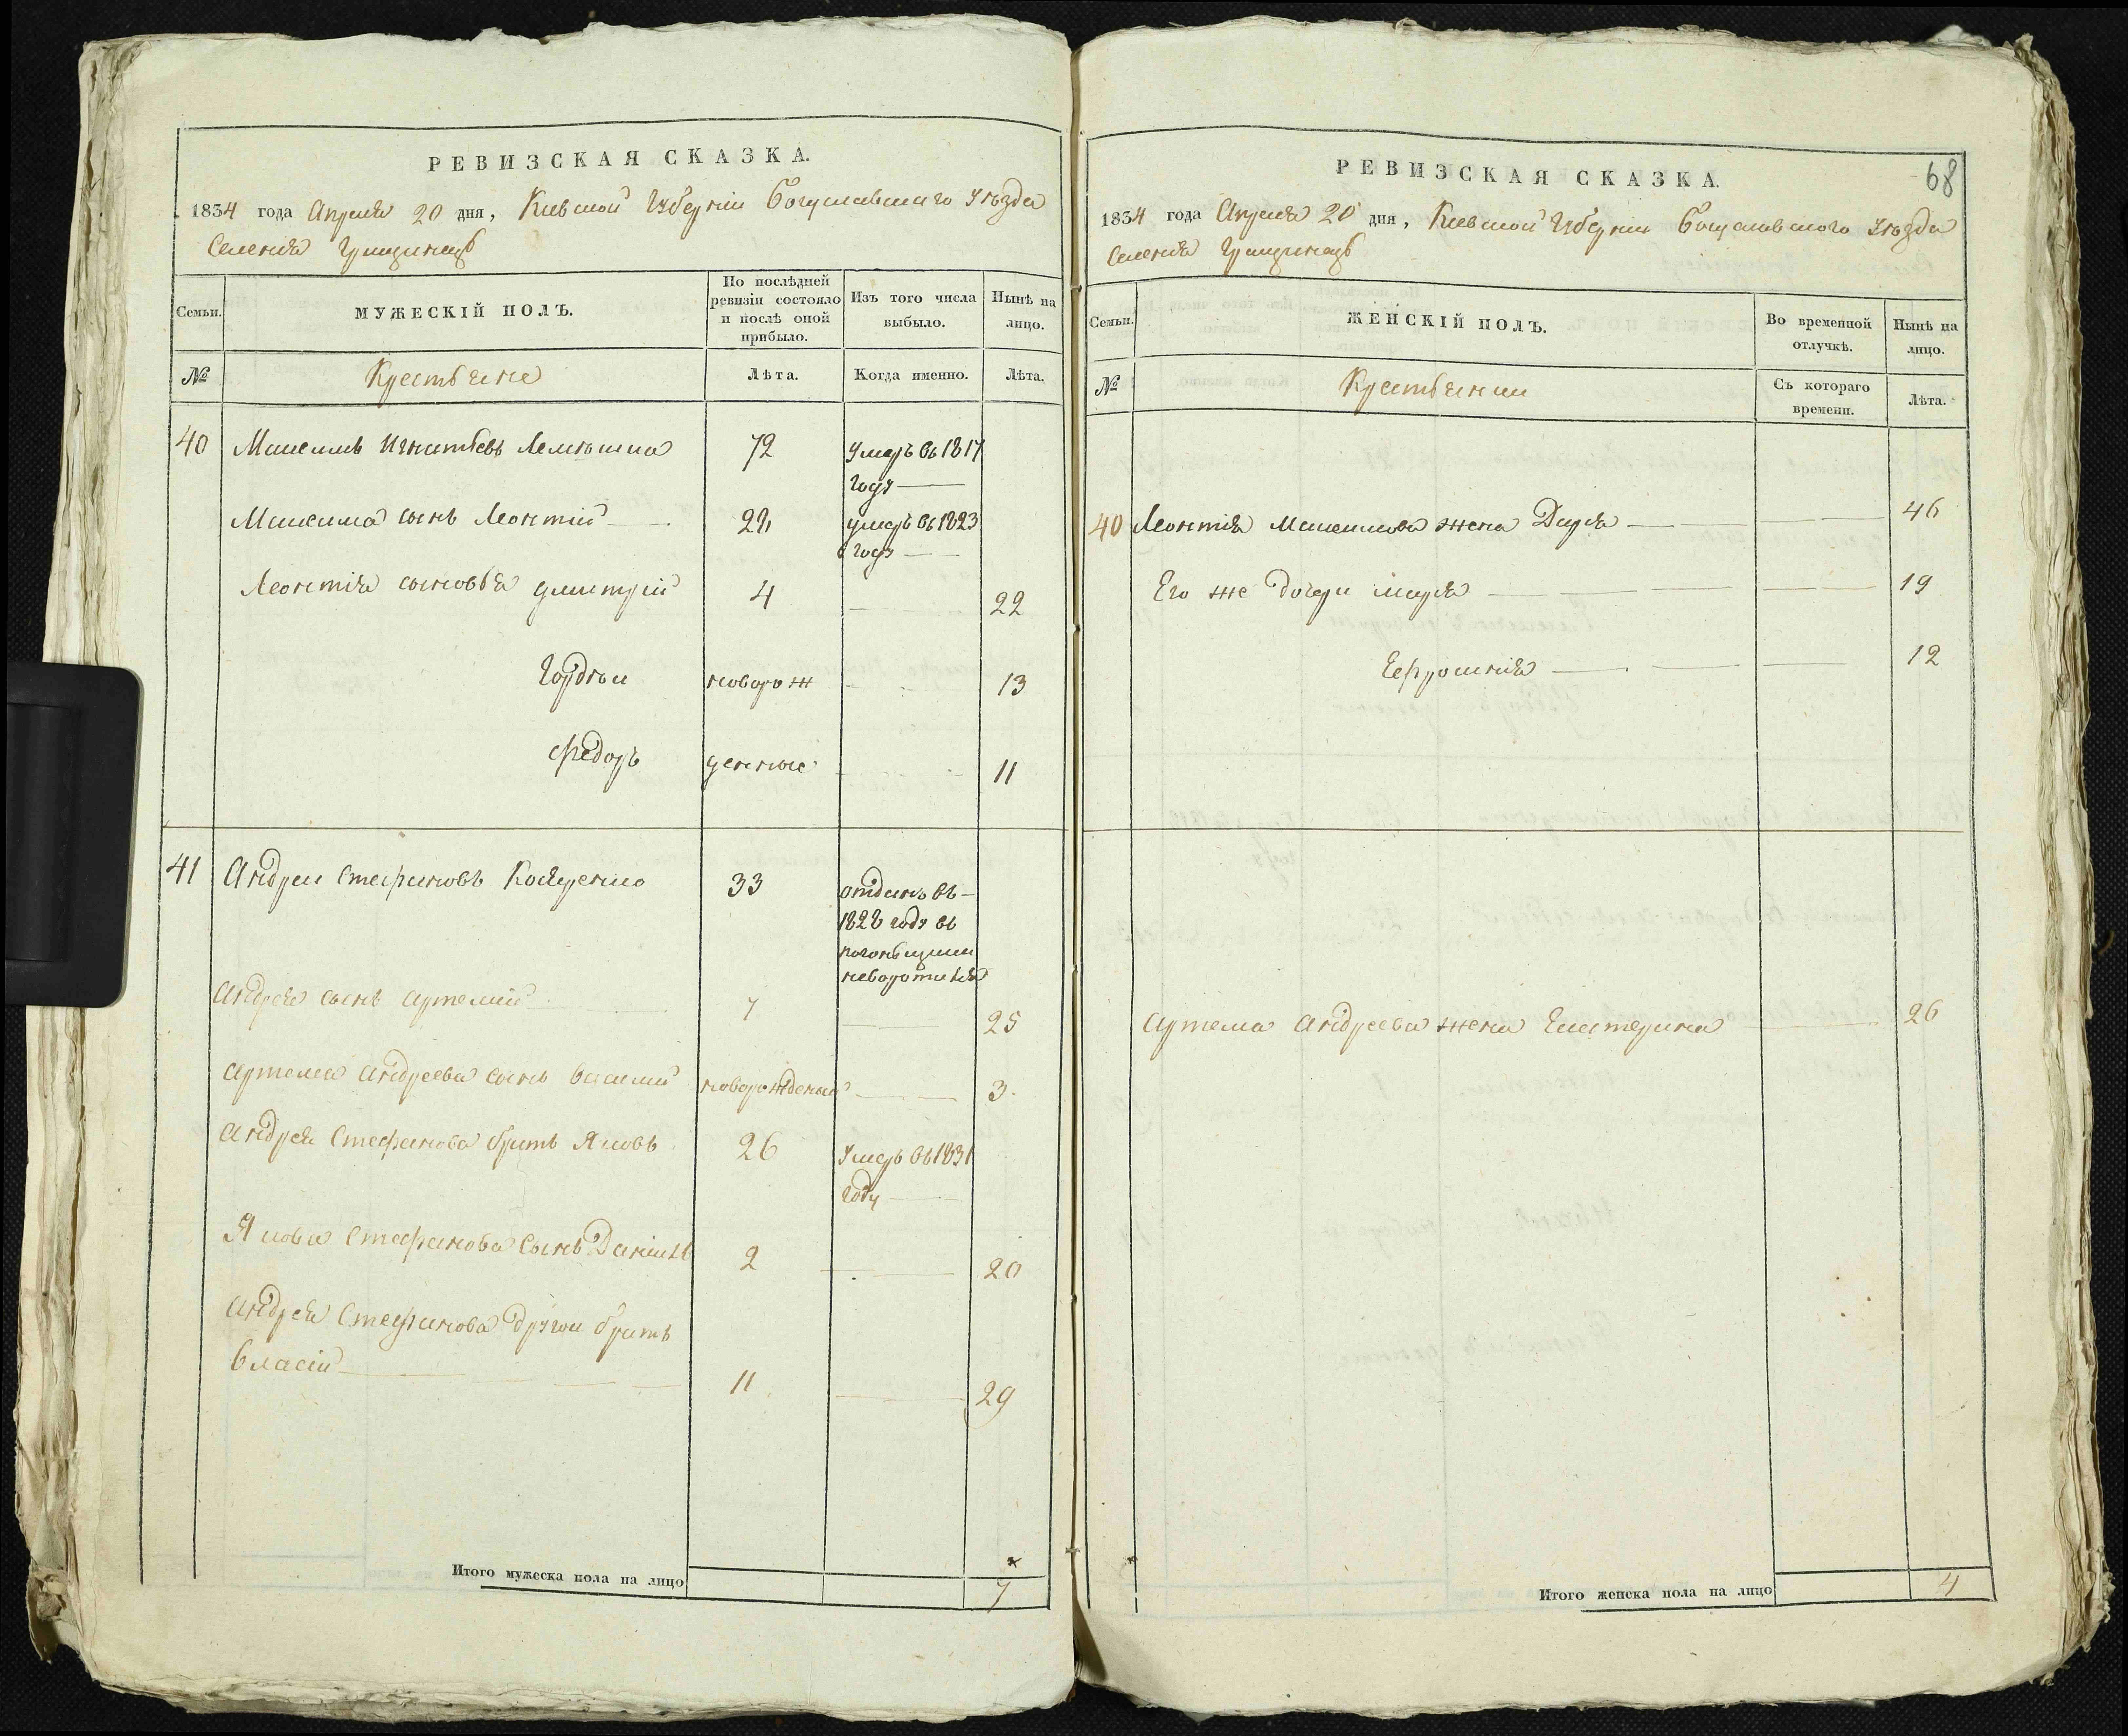 РЕВИЗСКАЯ СКАЗКА.
1834 года Апреля 20 дня, Киевской Губернии Богуславского Уезда
Селения
Семьи.
МУЖЕСКІЙ ПОЛЪ.
По послѣдней ревизіи состояло и послѣ оной прибыло.
Изъ того числа выбыло.
Нынѣ на лицо.
№
Крестьяне
Лѣта.
Когда именно.
Лѣта.
40 Максимъ Игнатьевъ 72 Умеръ въ 1817
году
Максима сынъ Леонтій 28 умеръ въ 1823
году
Леонтія сыновья Дмитрій 4 22
Гордѣй новорож 13
Федоръ денные 11
41 Андрей Стефановъ 33 отданъ въ
1828 году въ
погоньщики
неворотился
Андрея сынъ Артемій 7 25
Артемія Андреева сынъ Василий новорожденый 3
Андрея Стефанова братъ Яковъ 26 Умеръ въ 1831
году
Якова Стефанова сынъ Даніилъ 2 20
Андрея Стефанова другой братъ
Власій 11 29
Итого мужеска пола на лицо 7
68
РЕВИЗСКАЯ СКАЗКА.
1834 года Апреля 20 дня, Киевской Губернии Богуславского Уезда
Селения
Семьи.
ЖЕНСКІЙ ПОЛЪ.
Во временной отлучкѣ.
Нынѣ на лицо.
№
Крестьянки
Съ котораго времени.
Лѣта.
40 Леонтія Максимова жена Дарья 46
Его же дочери Марья 19
Ефросинія 12
Артема Андреева жена Екатерина 26
Итого женска пола на лицо 4